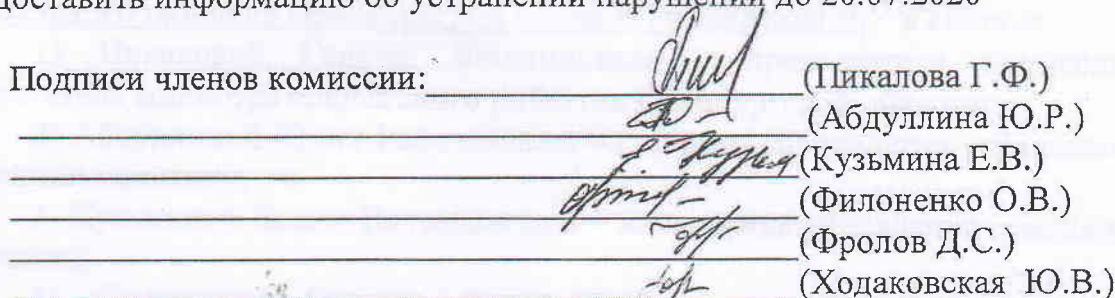 доставить информацию об устранении нарушений до 20.07.2020
Подписи членов комиссии: (Пикалова Г.Ф.)
(Абдуллина Ю.Р.)
(Кузьмина Е.В.)
(Филоненко О.В.)
(Фролов Д.С.)
(Ходаковская Ю.В.)